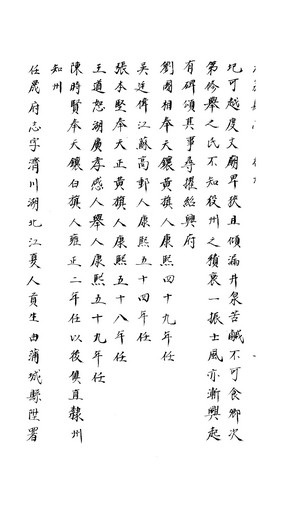 圯可越度又廟界狹且傾漏井泉苦鹹不可食鄉次
第修舉之氏不知役州之積衰一振士風亦漸興起
有碑頌其事尋擢紹興府
劉國相奉天鑲黃旗人康熙四十九年任
吳廷偉江蘇高郵人康熙五十四年任
張本堅奉天正黃旗人康熙五十八年任
王道恕湖廣孝感人舉人康熙五十九年任
陳時賢奉天鑲白旗人雍正二年任以後俱直隸州
知州
任晟府志字濟川湖北江夏人貢生由蒲城縣陞署